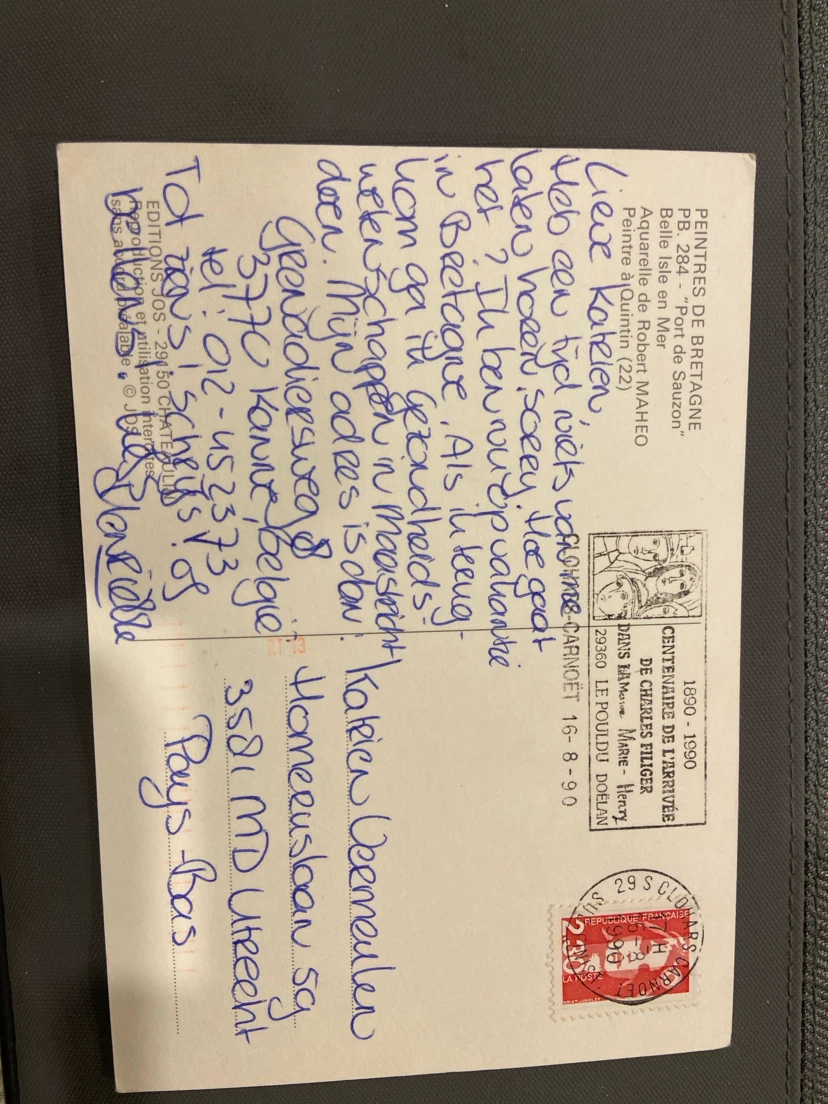 PEINTRES DE BRETAGNE
PB. 284 - "Port de Sauzon"
Belle Isle en Mer
Aquarelle de Robert MAHEO
Peintre à Quintin (22)
Lieve Katrien,
Heb een tijd niets van me
laten horen, sorry. Hoe gaat
het? Ik ben nu op vakantie
in Bretagne. Als ik terug-
kom ga ik gezondheids-
wetenschappen in Maastricht
doen. Mijn adres is dan:
Grenadiersweg 8
3770 Kanne, België
tel: 012-452373
Tot ziens, schrijf! of
bel eens!
EDITIONS JOS - 29150 CHATEAULIN
Reproduction et utilisation interdites
sans accord préalable. © JOS
1890 - 1990
CENTENAIRE DE L'ARRIVÉE
DE CHARLES FILIGER
DANS LA Maison MARIE - Henry
29360 LE POULDU DOËLAN
CLOHARS-CARNOËT 16-8-90
29 S CLOHARS CARNOET
REPUBLIQUE FRANÇAISE
2,30
LA POSTE
Katrien Vermeulen
Homeruslaan 59
3581 MD Utrecht
Pays-Bas